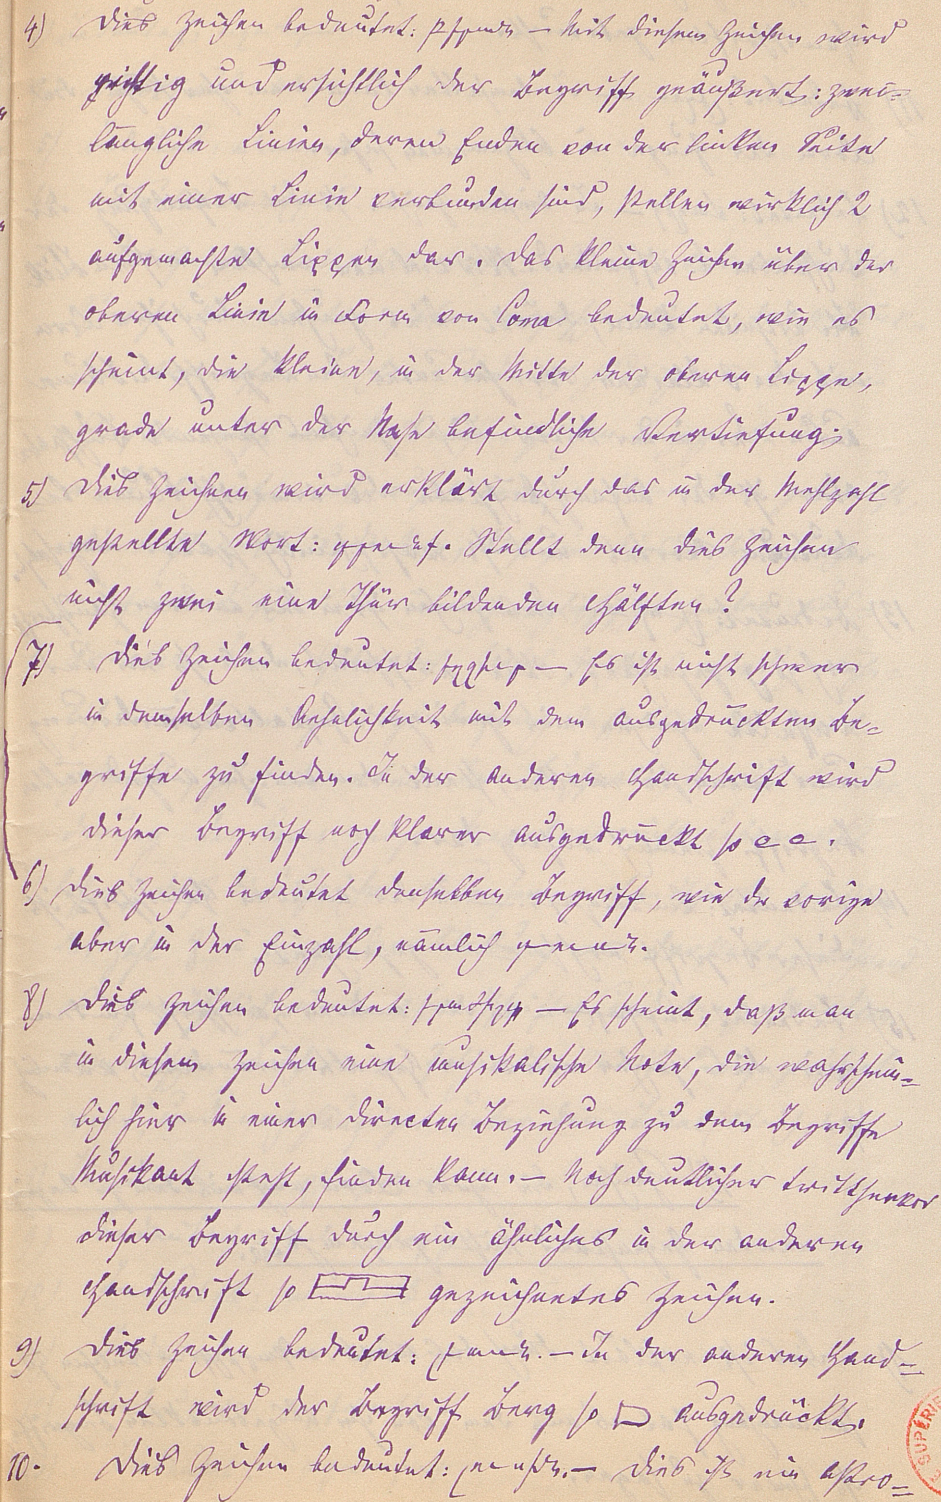 4) Dies Zeichen bedeutet: — Mit diesem Zeichen wird
richtig und ersichtlich der Begriff geäußert: zwei-
längliche Linien, deren Enden von der linken Seite
mit einer Linie verbunden sind, stellen wirklich 2
aufgemachte Lippen dar. Das kleine Zeichen über der
oberen Linie in Form von Coma bedeutet, wie es
scheint, die kleine, in der Mitte der oberen Lippe,
grade unter der Nase befindliche Vertiefung.
5) Dies Zeichen wird erklärt durch das in der Mehlzahl
gestellte Wort: Stellt denn dies Zeichen
nicht zwei eine Thür bildenden Hälften?
7) Dies Zeichen bedeutet: — Es ist nicht schwer
in demselben Aehnlichkeit mit dem ausgedrückten Be-
griffe zu finden. In der anderen Handschrift wird
dieser Begriff noch klarer ausgedrückt so
6) Dies Zeichen bedeutet denselben Begriff, wie der vorige
aber in der Einzahl, nämlich
8) Dies Zeichen bedeutet: — Es scheint, daß man
in diesem Zeichen eine musikalische Note, die wahrschein-
lich hier in einer directen Beziehung zu dem Begriffe
Musikant steht, finden kann. — Noch deutlicher tritt hervor
dieser Begriff durch ein ähnliches in der anderen
Handschrift so gezeichnetes Zeichen.
9) Dies Zeichen bedeutet: — In der anderen Hand-
schrift wird der Begriff Berg so ausgedrückt.
10. Dies Zeichen bedeutet: — Dies ist ein Astro-